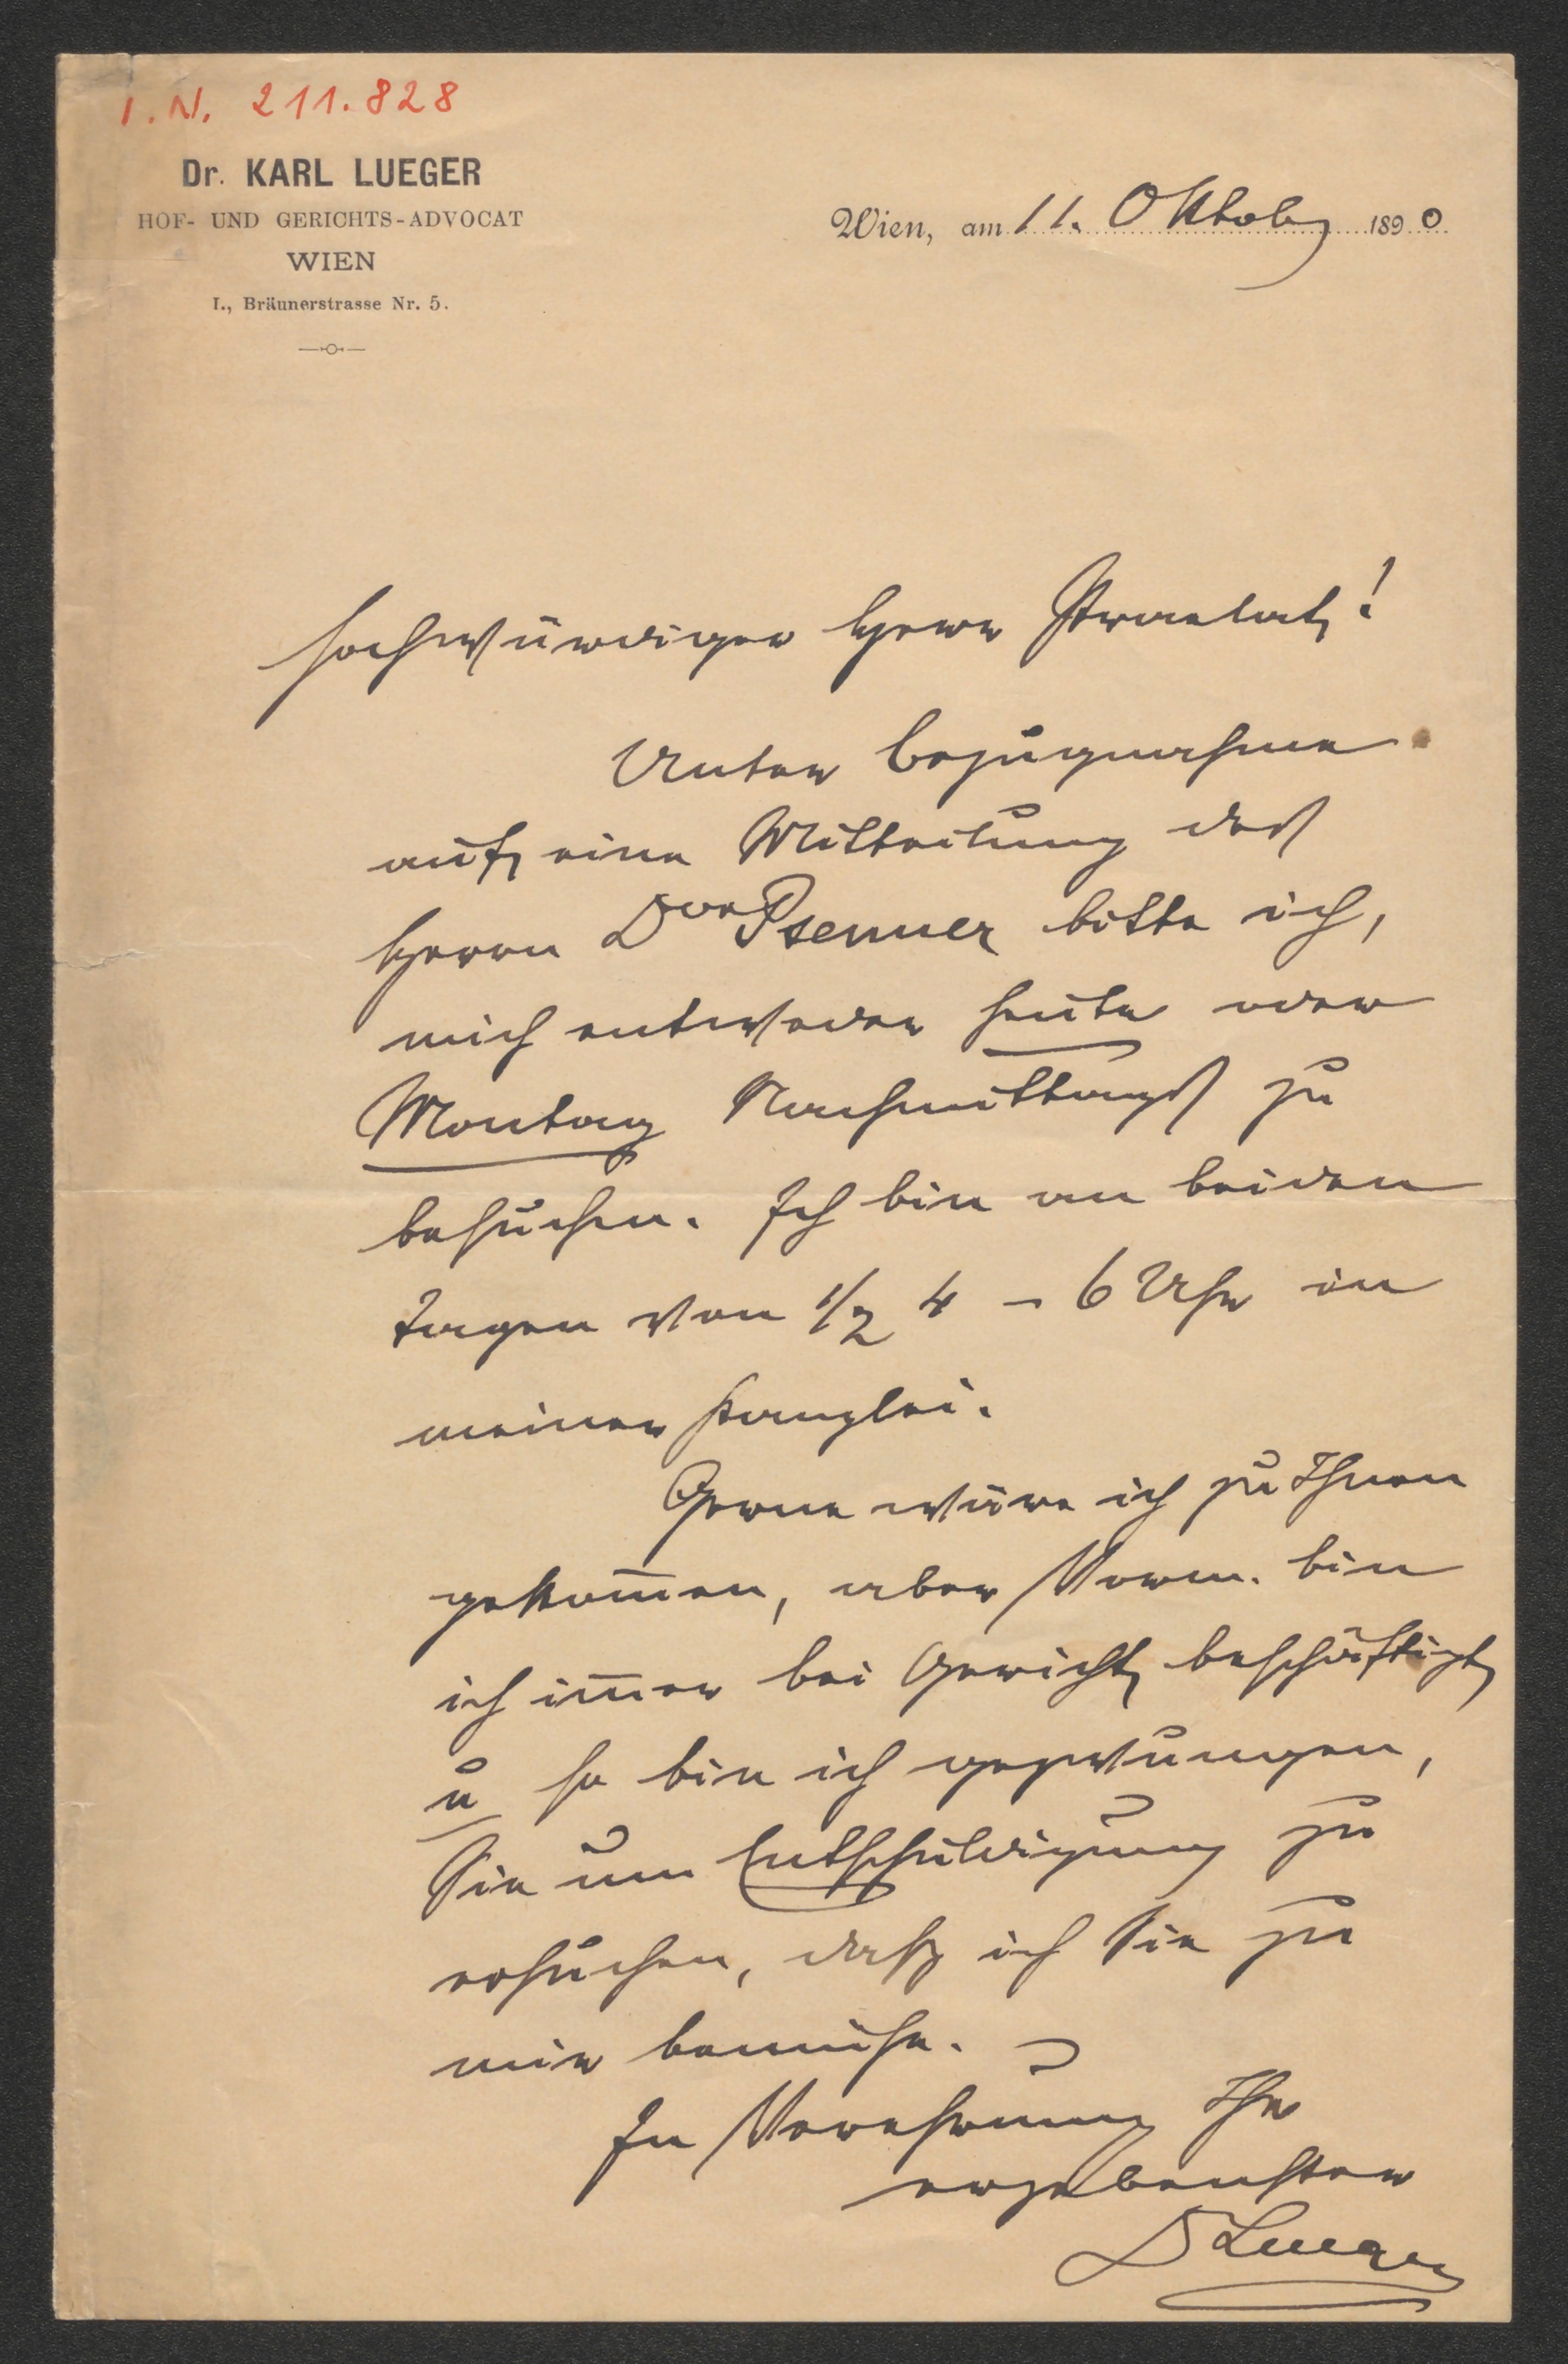 I. N. 211.828
Dr. KARL LUEGER
HOF- UND GERICHTS-ADVOCAT
WIEN
I., Bräunerstrasse Nr. 5.
Wien, am 11. Oktober 1890
Hochwürdiger Herr Praelat!
Unter Bezugnahme
auf eine Mitteilung des
Herrn Dor Psenner bitte ich,
mich entweder heute oder
Montag Nachmittags zu
besuchen. Ich bin an beiden
Tagen von 1/2 4 – 6 Uhr in
meiner Kanzlei.
Gerne wäre ich zu Ihnen
gekom̄en, aber Vorm. bin
ich im̄er bei Gericht beschäftigt
u so bin ich gezwungen,
Sie um Entschuldigung zu
ersuchen, daß ich Sie zu
mir bemühe.
In Verehrung Ihr
ergebenster
D Lueger